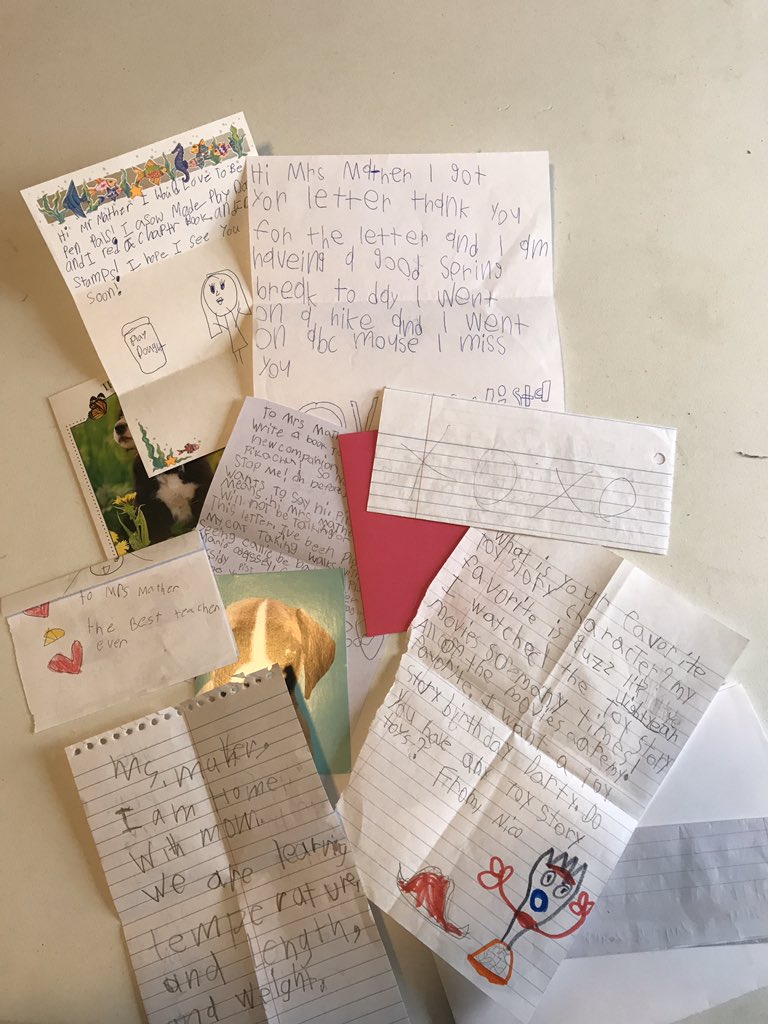 Hi Mr Mather I Would Love To Be
Pen Pals! I aSow Made Play Do
and I red a Chaptr Book and I
Stamps! I hope I See You
Soon!
Play
Dough
Hi Mrs Mather I got
yor letter thank you
for the letter and I am
haveing a good spring
break to day I went
on a hike and I went
on abc mouse I miss
you
XOXO
To Mrs Math
write a book
new companion
Pikachu! So
Stop me! Oh before
wants to say hi
Means hi Mrs Math
Will not be talking
This letter. I've been
My cat Taking walks
to Mrs Mather
the Best teacher
ever
What is your favorite
toy story character? my
favorite is Buzz
Lightyear
I watched the toy story
movies so many times!
All of the movies are my
favorite. I want a toy
story birthday party. Do
you have any toy story
toys?
From Nico
Ms. Mather,
I am Home
With mom.
We are learning
temperature
and length,
and weight.